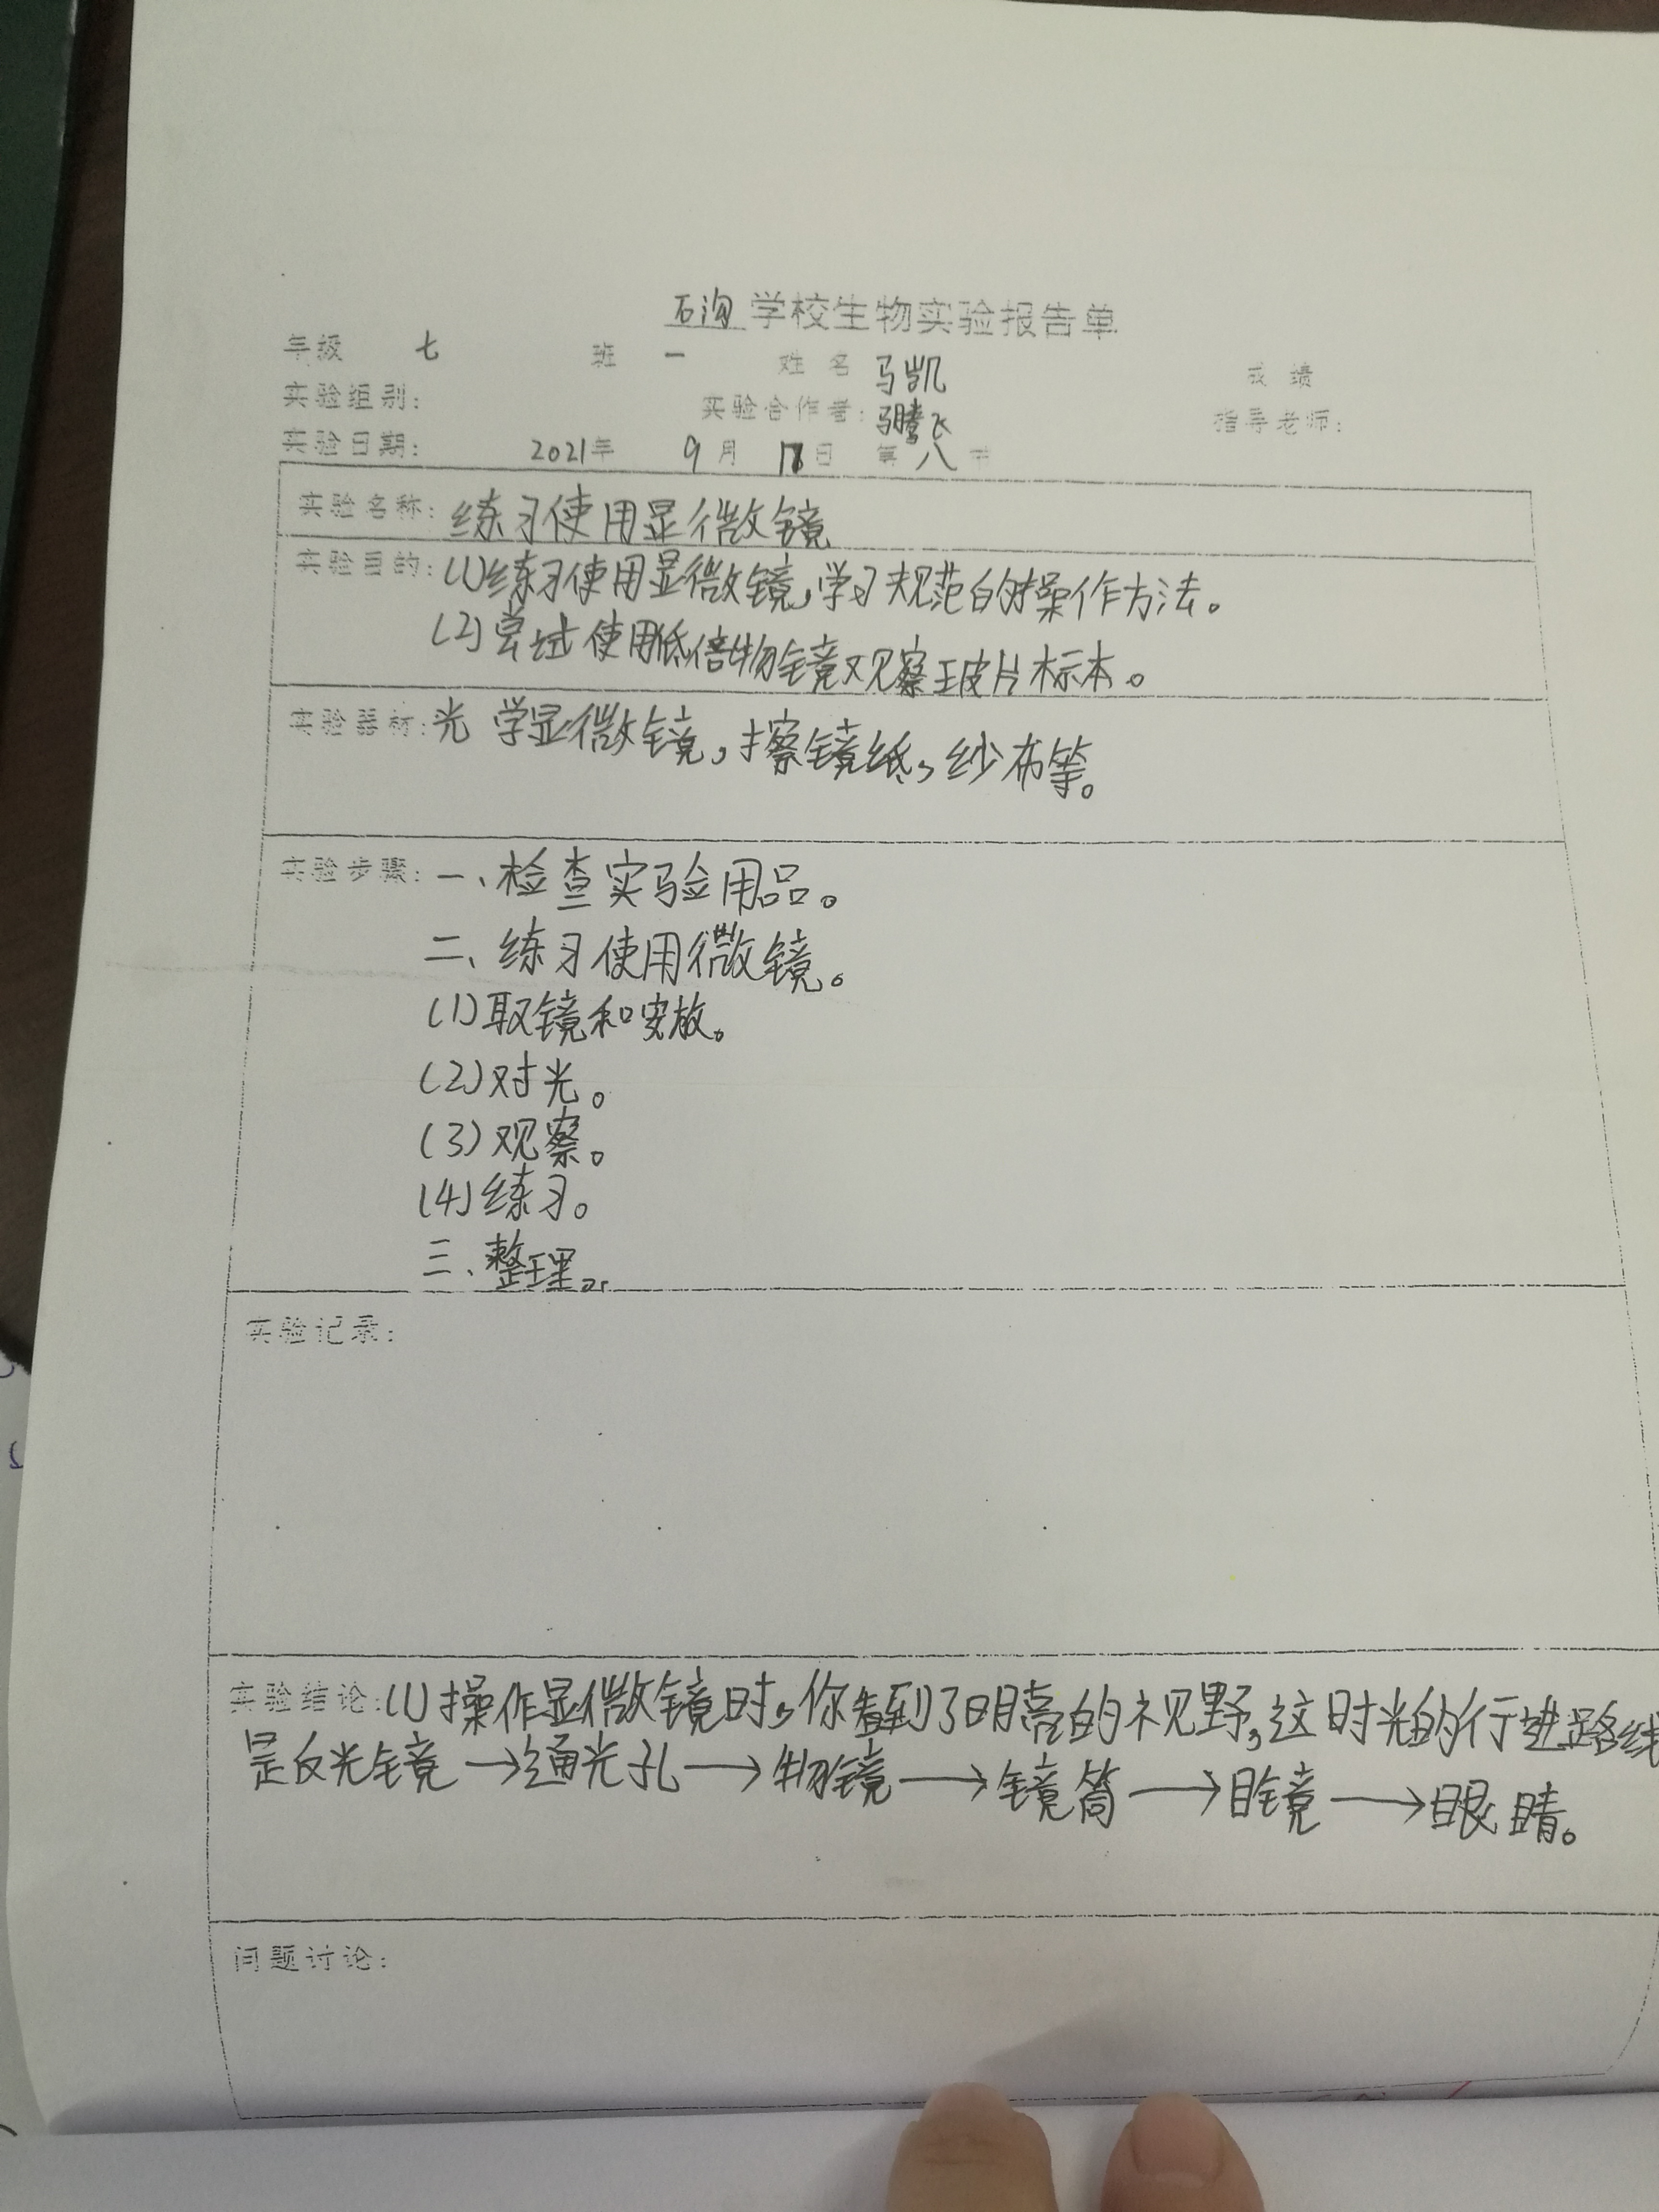 石沟 学校生物实验报告单
年级 七 班 一 姓名 马凯 成绩
实验组别： 实验合作者：马腾飞 指导老师：
实验日期： 2021年 9月 日 第八节
实验名称：练习使用显微镜
实验目的：(1)练习使用显微镜，学习规范的操作方法。
(2)尝试使用低倍物镜观察玻片标本。
实验器材：光学显微镜，擦镜纸，纱布等。
实验步骤：一、检查实验用品。
二、练习使用微镜。
(1)取镜和安放。
(2)对光。
(3)观察。
(4)练习。
三、整理。
实验记录：
实验结论：(1)操作显微镜时，你看到了明亮的视野，这时光的行进路线
是反光镜→通光孔→物镜→镜筒→目镜→眼睛。
问题讨论：